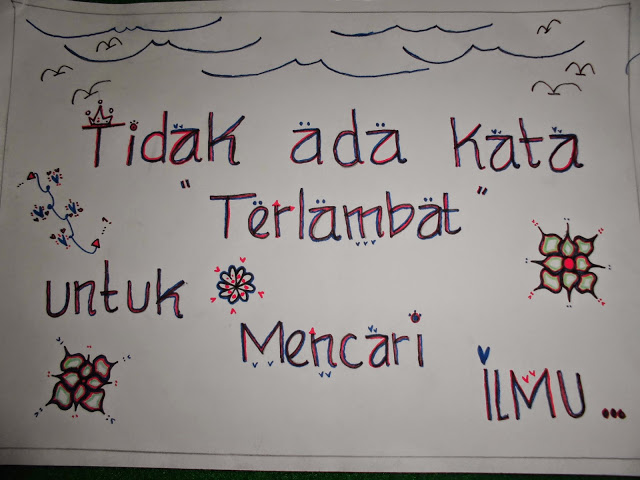 Tidak ada kata
"Terlambat"
untuk
Mencari
ILMU...